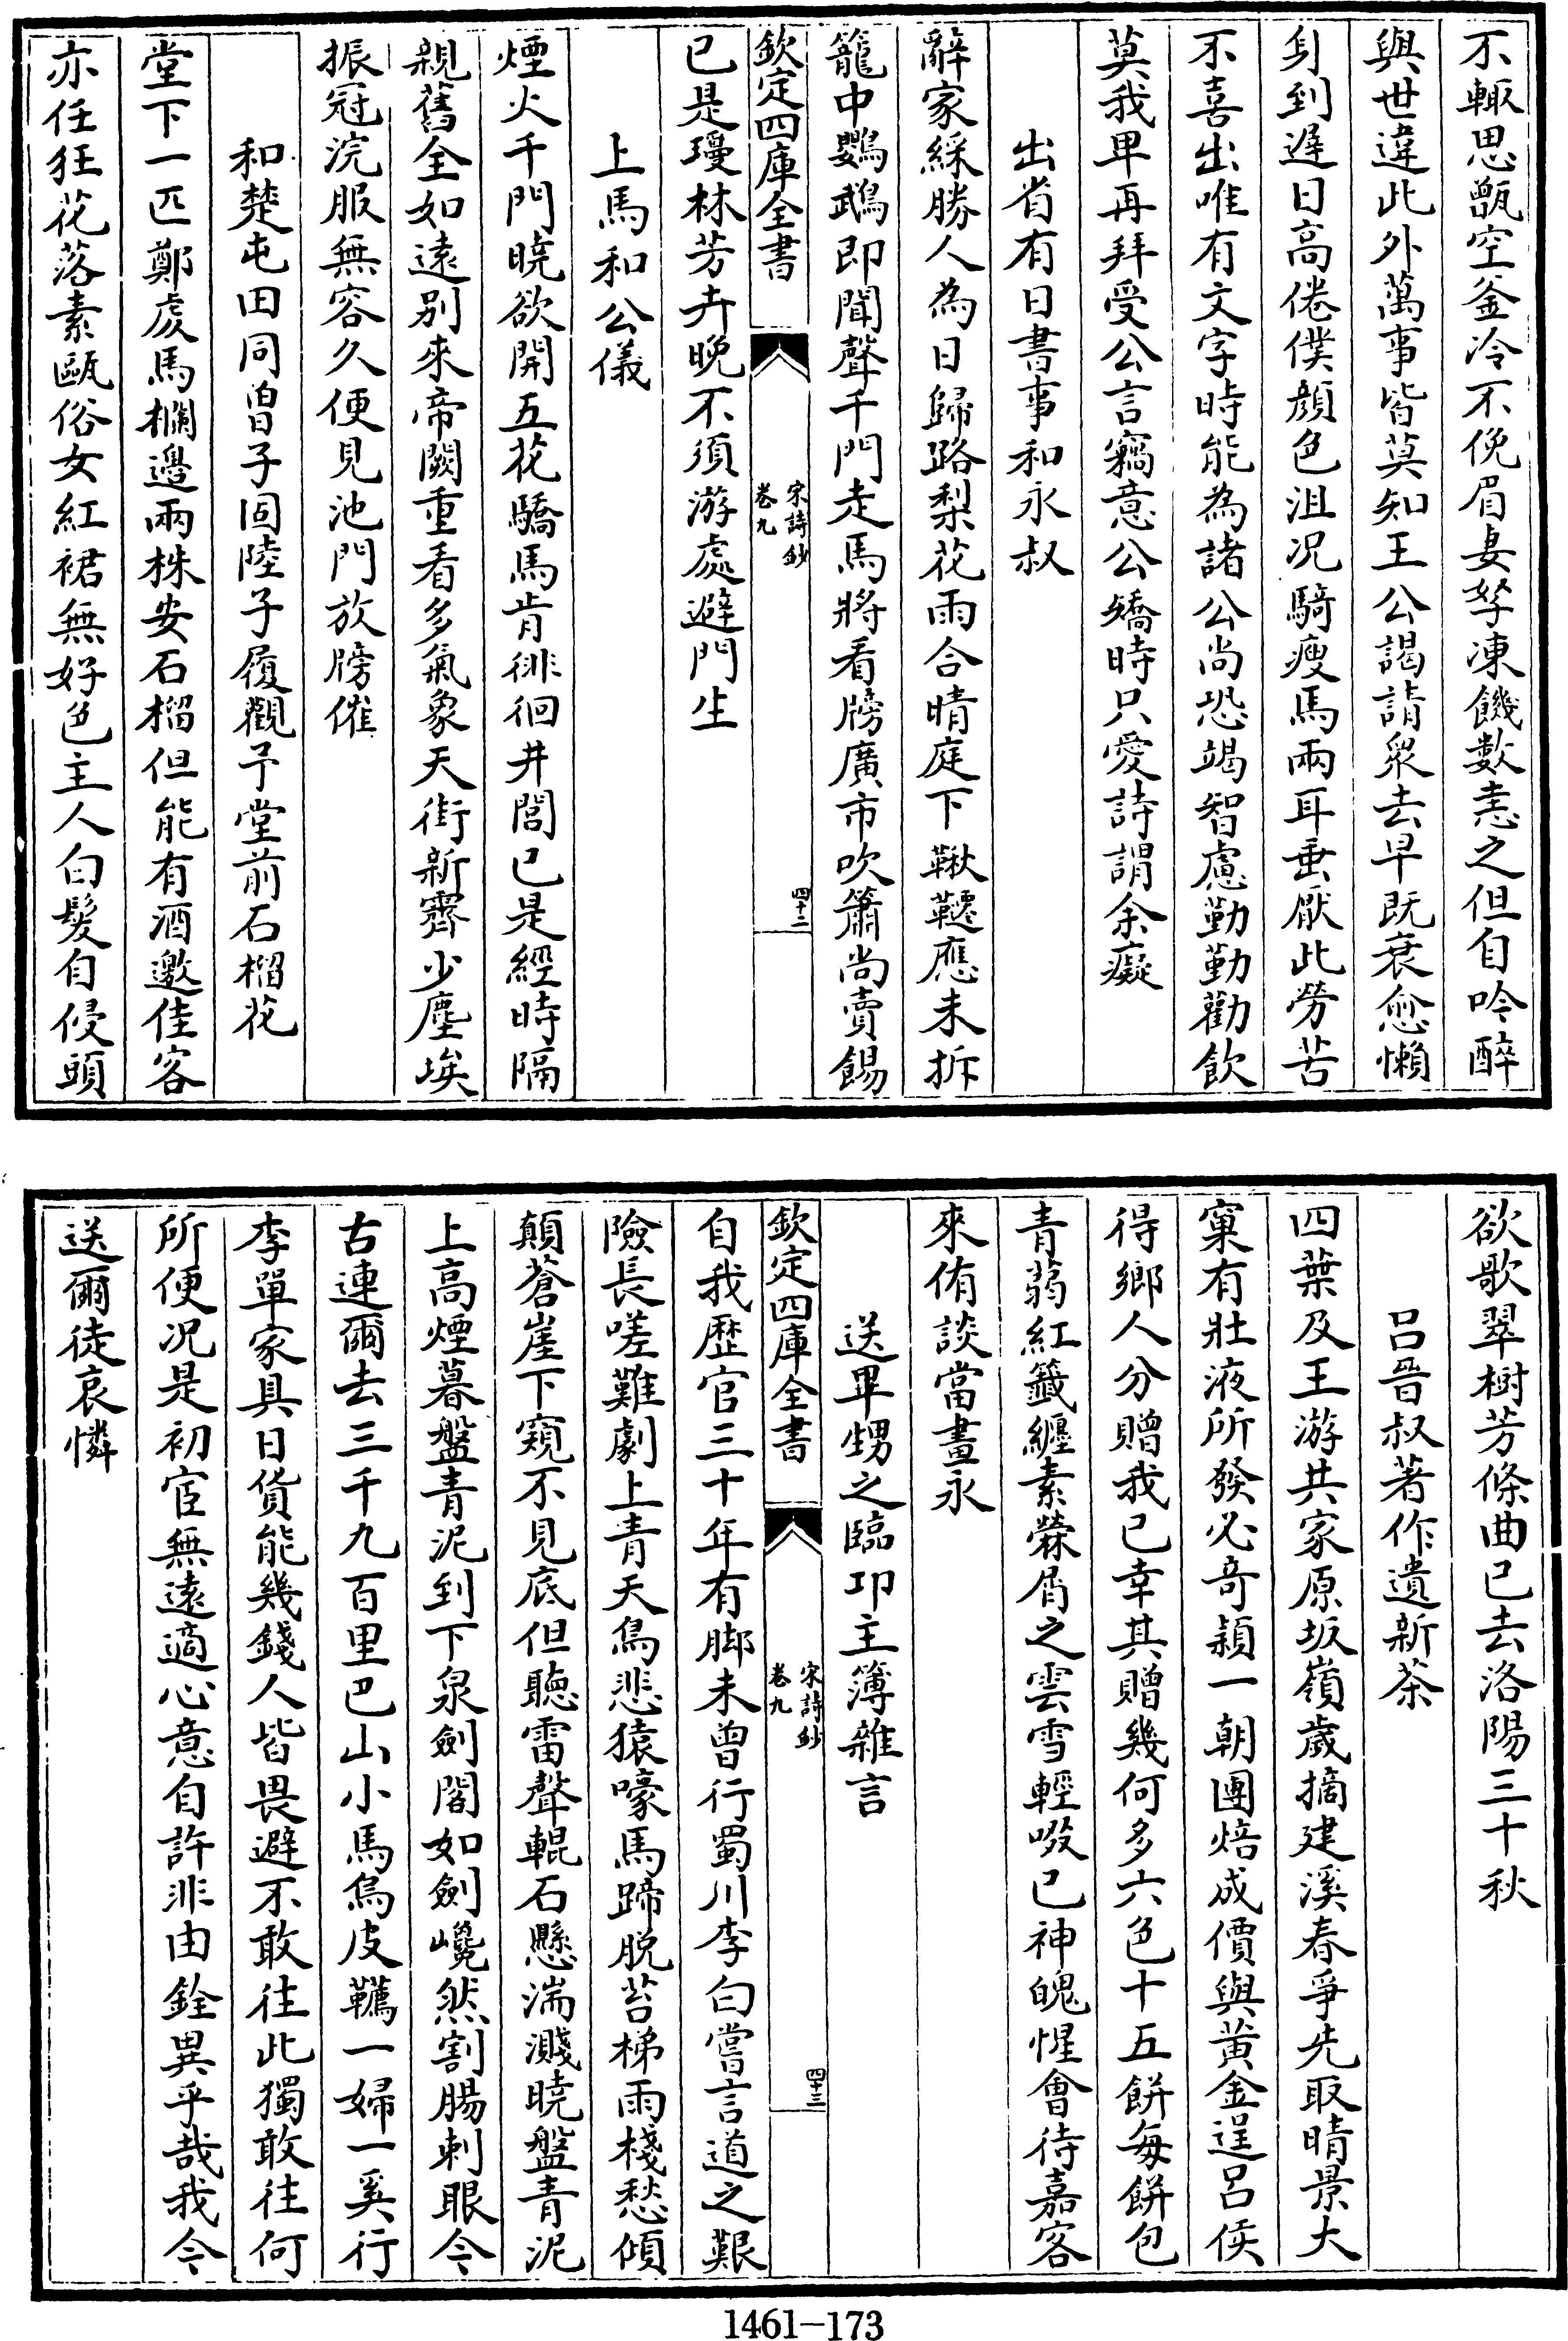 不輙思甑空釜冷不俛眉妻孥凍饑數恚之但自吟醉
與世違此外萬事皆莫知王公謁請衆去早既衰愈懶
身到遲日高倦僕顔色沮况騎瘦馬兩耳垂厭此勞苦
不喜出唯有文字時能為諸公尚恐竭智慮勤勤勸飲
莫我卑再拜受公言竊意公矯時只愛詩謂余癡
出省有日書事和永叔
辭家綵勝人為日歸路梨花雨合晴庭下鞦韆應未拆
籠中鸚鵡即聞聲千門走馬將看牓廣市吹簫尚賣餳
欽定四庫全書
宋詩鈔
卷九
四十二
已是瓊林芳卉晚不須游處避門生
上馬和公儀
煙火千門曉欲開五花驕馬肯徘徊井閭已是經時隔
親舊全如遠别來帝闕重看多氣象天街新霽少塵埃
振冠浣服無容久便見池門放牓催
和楚屯田同曽子固陸子履觀予堂前石榴花
堂下一匹鄭虔馬欄邊兩株安石榴但能有酒邀佳客
亦任狂花落素甌俗女紅裙無好色主人白髮自侵頭
欲歌翠樹芳條曲已去洛陽三十秋
吕晉叔著作遺新茶
四葉及王游共家原坂嶺歲摘建溪春爭先取晴景大
窠有壯液所發必竒頴一朝團焙成價與黄金逞吕侯
得鄉人分贈我已幸其贈幾何多六色十五餅每餅包
青蒻紅籤纏素䔛屑之雲雪輕啜已神魄惺會待嘉客
來侑談當晝永
送畢甥之臨卭主簿雜言
欽定四庫全書
宋詩鈔
卷九
四十三
自我歴官三十年有脚未曾行蜀川李白嘗言道之艱
險長嗟難劇上青天鳥悲猿嚎馬蹄脱苔梯雨棧愁傾
顛蒼崖下窺不見底但聽雷聲輥石懸湍濺曉盤青泥
上高煙暮盤青泥到下泉劍閣如劍巉然割腸刺眼今
古連爾去三千九百里巴山小馬烏皮韉一婦一奚行
李單家具日貨能幾錢人皆畏避不敢往此獨敢往何
所便况是初宦無遠適心意自許非由銓異乎哉我今
送爾徒哀憐
1461-173